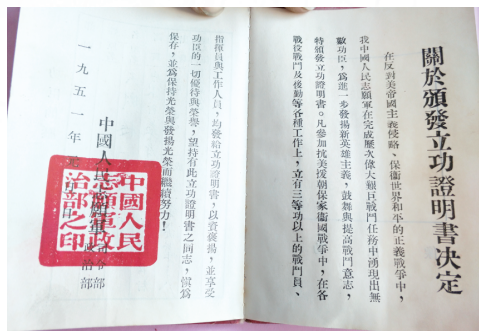 關於頒發立功證明書決定
在反對美帝國主義侵略、保衞世界和平的正義戰爭中，
我中國人民志願軍在完成歷次偉大艱巨戰鬥任務中湧現出無
數功臣，爲進一步發揚新英雄主義，鼓舞與提高戰鬥意志，
特頒發立功證明書。凡參加抗美援朝保家衞國戰爭中，在各
戰役戰鬥及後勤等各種工作上，立有三等功以上的戰鬥員、
指揮員與工作人員，均發給立功證明書，以資褒揚，並享受
功臣的一切優待與榮譽，望持有此立功證明書之同志，愼爲
保存，並爲保持光榮與發揚光榮而繼續努力！
中國人民志願軍
政治部
一九五一年 月 日
中國人民
志願軍政
治部之印